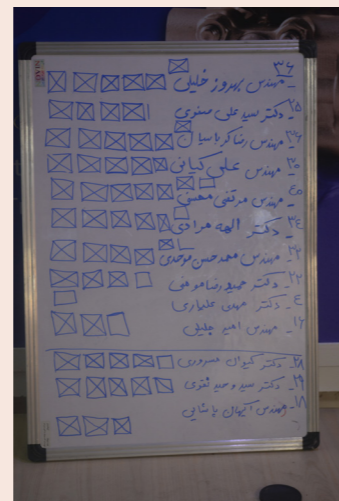 ۳۶
- مهندس بهروز خلیلی
۲۵- دکتر سید علی صفوی
۳۶- مهندس رضا کرباسیان
۳۰- مهندس علی کیانی
۴۵- مهندس مرتضی محسنی
۳۴- دکتر الهه مرادی
۳۲- مهندس محمدحسن موحدی
۲۲- دکتر حمیدرضا
۴- دکتر مهدی علیاری
۱۲- مهندس امیر جلیلی
۲۸- دکتر کیوان مسروری
۲۹- دکتر سید وحید تقوی
۱۸- مهندس کیهان پاشائی